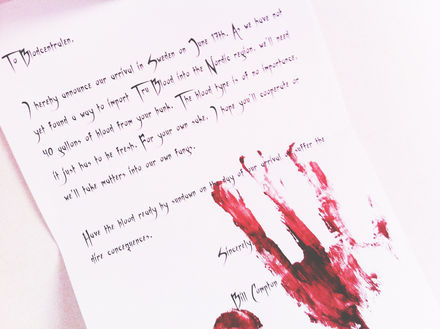 To Blodcentralen.
I hereby announce our arrival in Sweden on June 17th. As we have not
yet found a way to import Tru Blood into the Nordic region, we'll need
40 gallons of blood from your bank. The blood type is of no importance,
it just has to be fresh. For your own sake, I hope you'll cooperate or
we'll take matters into our own fangs.
Have the blood ready by sundown on the day of our arrival or suffer the
dire consequences.
Sincerely
Bill Compton